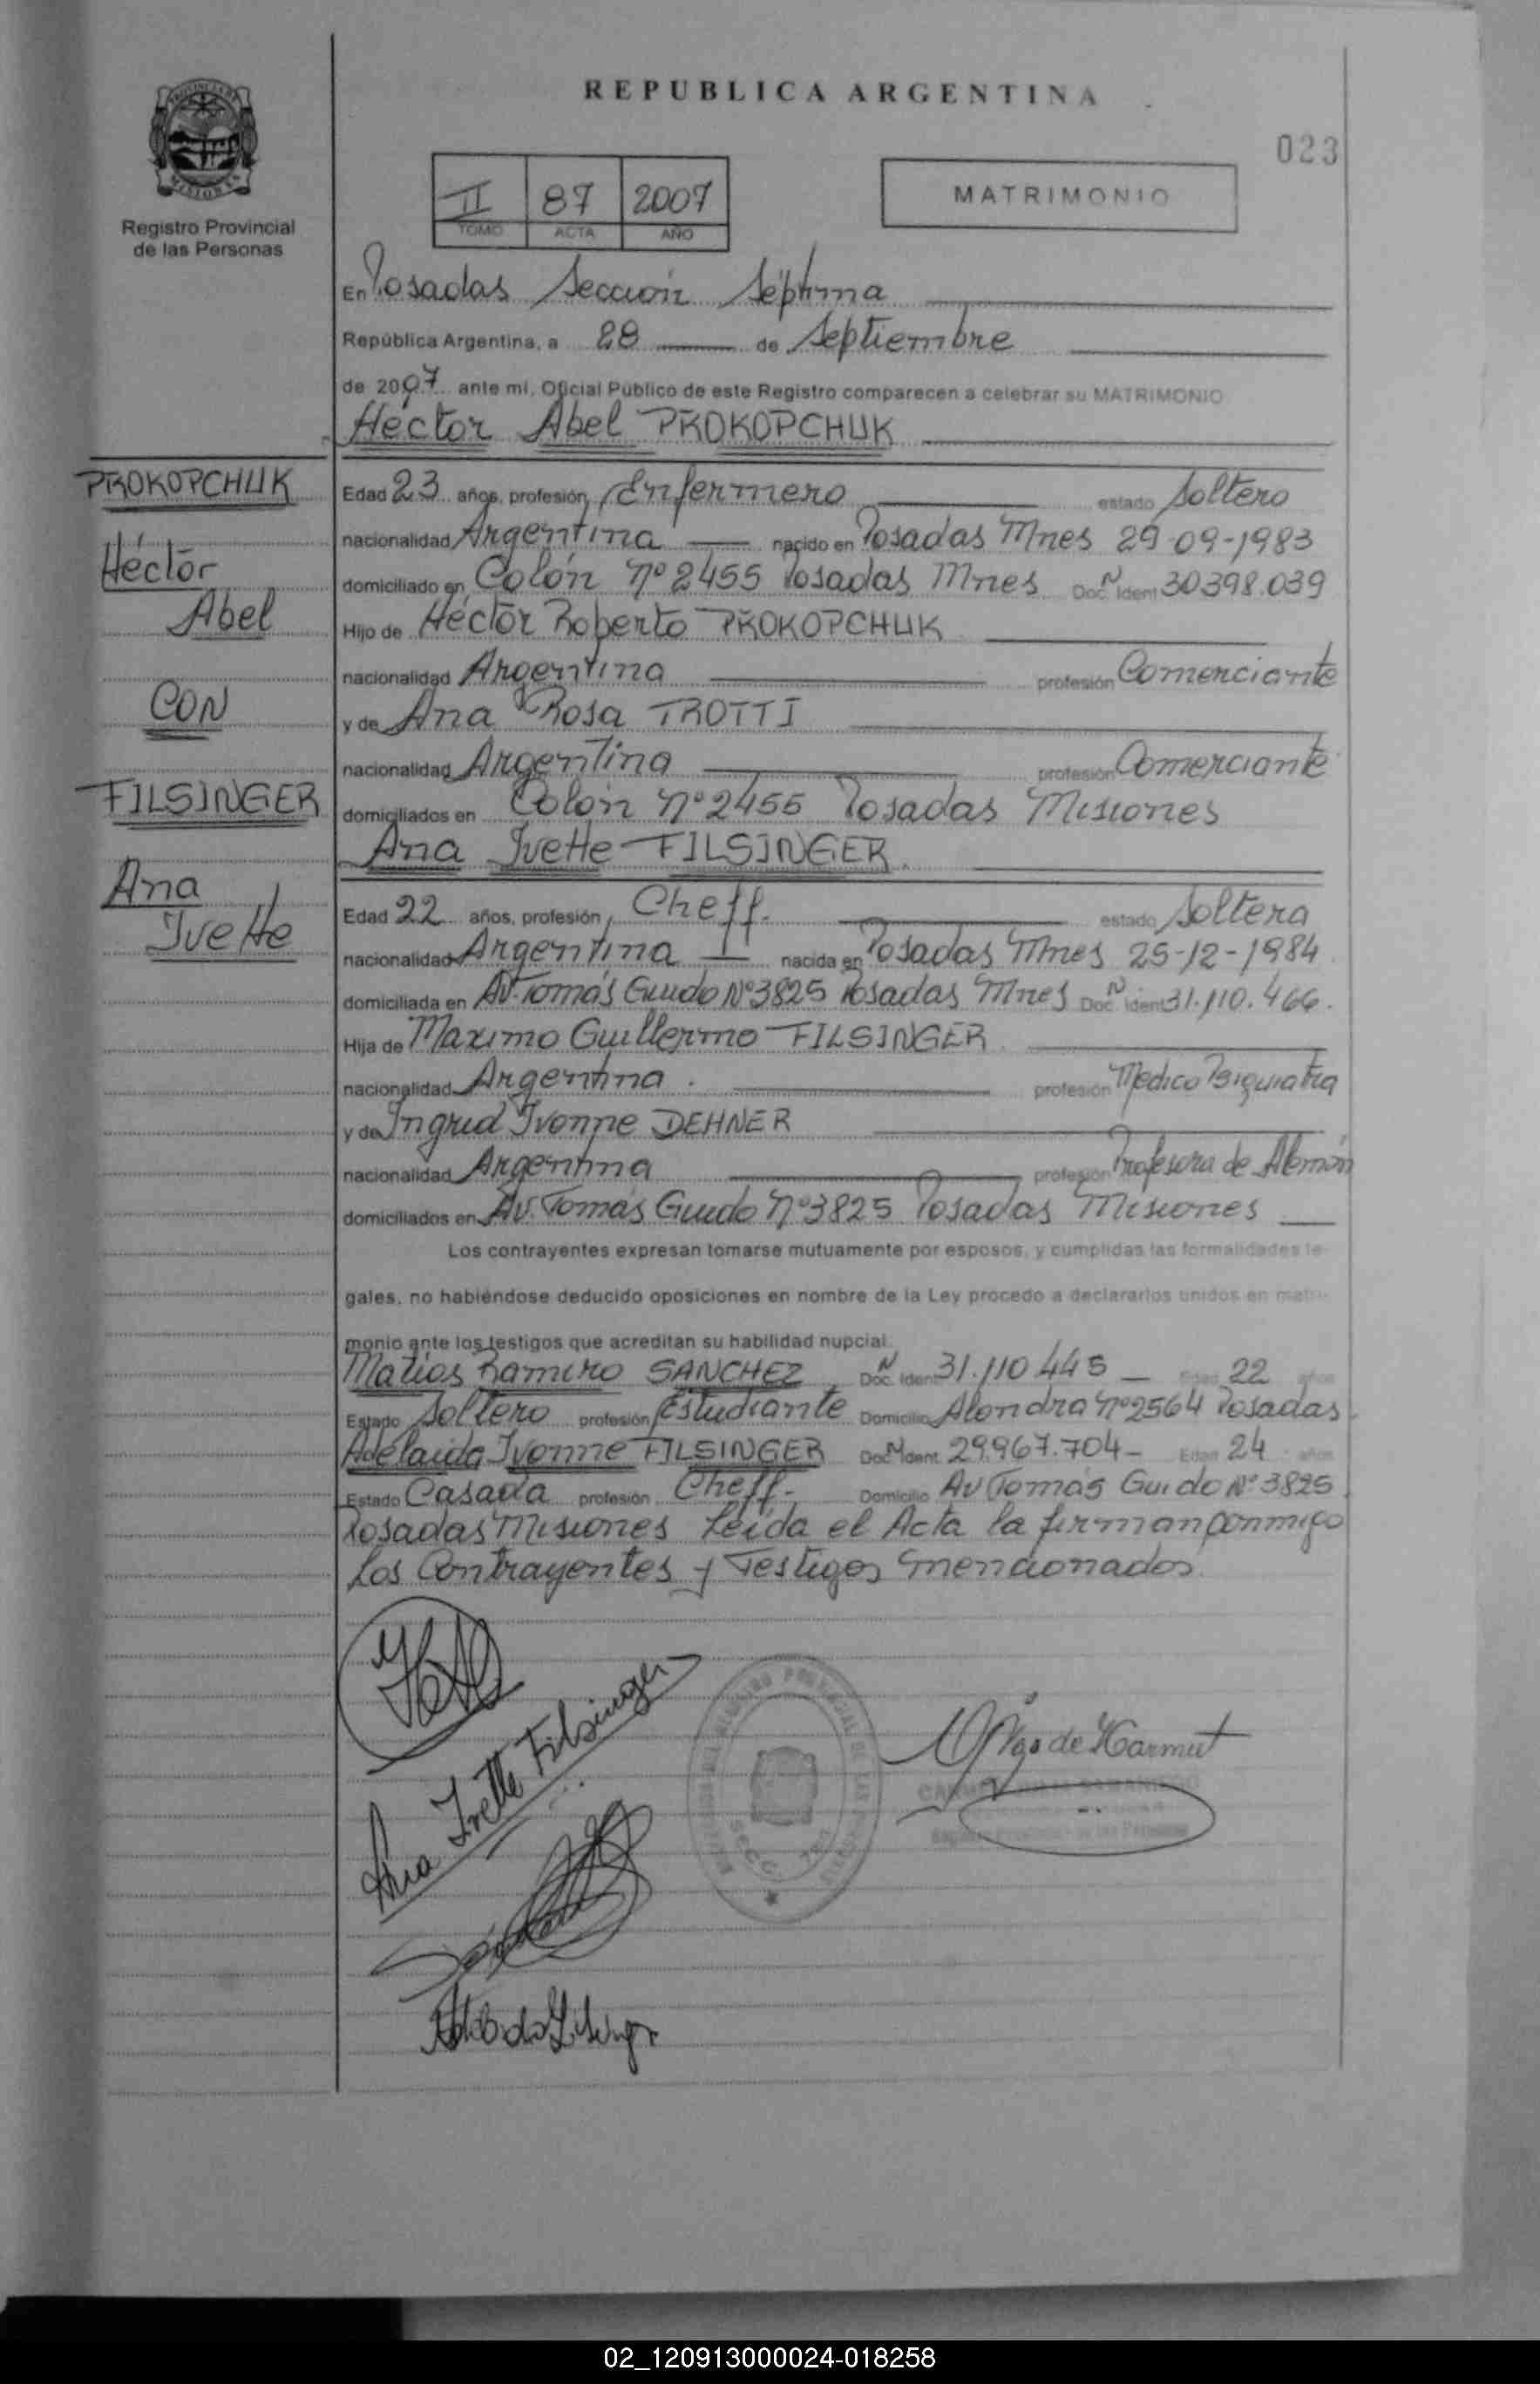 REPUBLICA ARGENTINA
023
PROVINCIA DE
MISIONES
Registro Provincial
de las Personas
II 87 2007
TOMO ACTA AÑO
MATRIMONIO
En Posadas Sección Séptima
República Argentina, a 28 de Septiembre
de 2007 ante mi, Oficial Público de este Registro comparecen a celebrar su MATRIMONIO
Héctor Abel PROKOPCHUK
PROKOPCHUK
Héctor
Abel
CON
FILSINGER
Ana
Ivette
Edad 23 años, profesión Enfermero estado Soltero
nacionalidad Argentina nacido en Posadas Mnes 29-09-1983
domiciliado en Colón nº 2455 Posadas Mnes Doc. Ident N 30398.039
Hijo de Héctor Roberto PROKOPCHUK
nacionalidad Argentina profesión Comerciante
y de Ana Rosa TROTTI
nacionalidad Argentina profesión Comerciante
domiciliados en Colón nº 2455 Posadas Misiones
Ana Ivette FILSINGER
Edad 22 años, profesión Cheff. estado Soltera
nacionalidad Argentina nacida en Posadas Mnes 25-12-1984
domiciliada en AV. Tomás Guido Nº 3825 Posadas Mnes Doc. Ident N 31.110.466.
Hija de Maximo Guillermo FILSINGER
nacionalidad Argentina. profesión Medico Siquiatra
y de Ingrid Ivonne DEHNER
nacionalidad Argentina profesión Profesora de Alemán
domiciliados en AV. Tomás Guido nº 3825 Posadas Misiones
Los contrayentes expresan tomarse mutuamente por esposos, y cumplidas las formalidades le-
gales, no habiéndose deducido oposiciones en nombre de la Ley procedo a declararlos unidos en matri-
monio ante los testigos que acreditan su habilidad nupcial.
Matias Ramiro SANCHEZ Doc. Ident N 31.110445 Edad 22 años
Estado Soltero profesión Estudiante Domicilio Alondra nº 2564 Posadas
Adelaida Ivonne FILSINGER Doc. Ident N 29.967.704 Edad 24 años
Estado Casada profesión Cheff. Domicilio AV Tomás Guido Nº 3825
Posadas Misiones Leída el Acta la firman conmigo
Los Contrayentes y Testigos mencionados.
Ana Ivette Filsinger
02_120913000024-018258